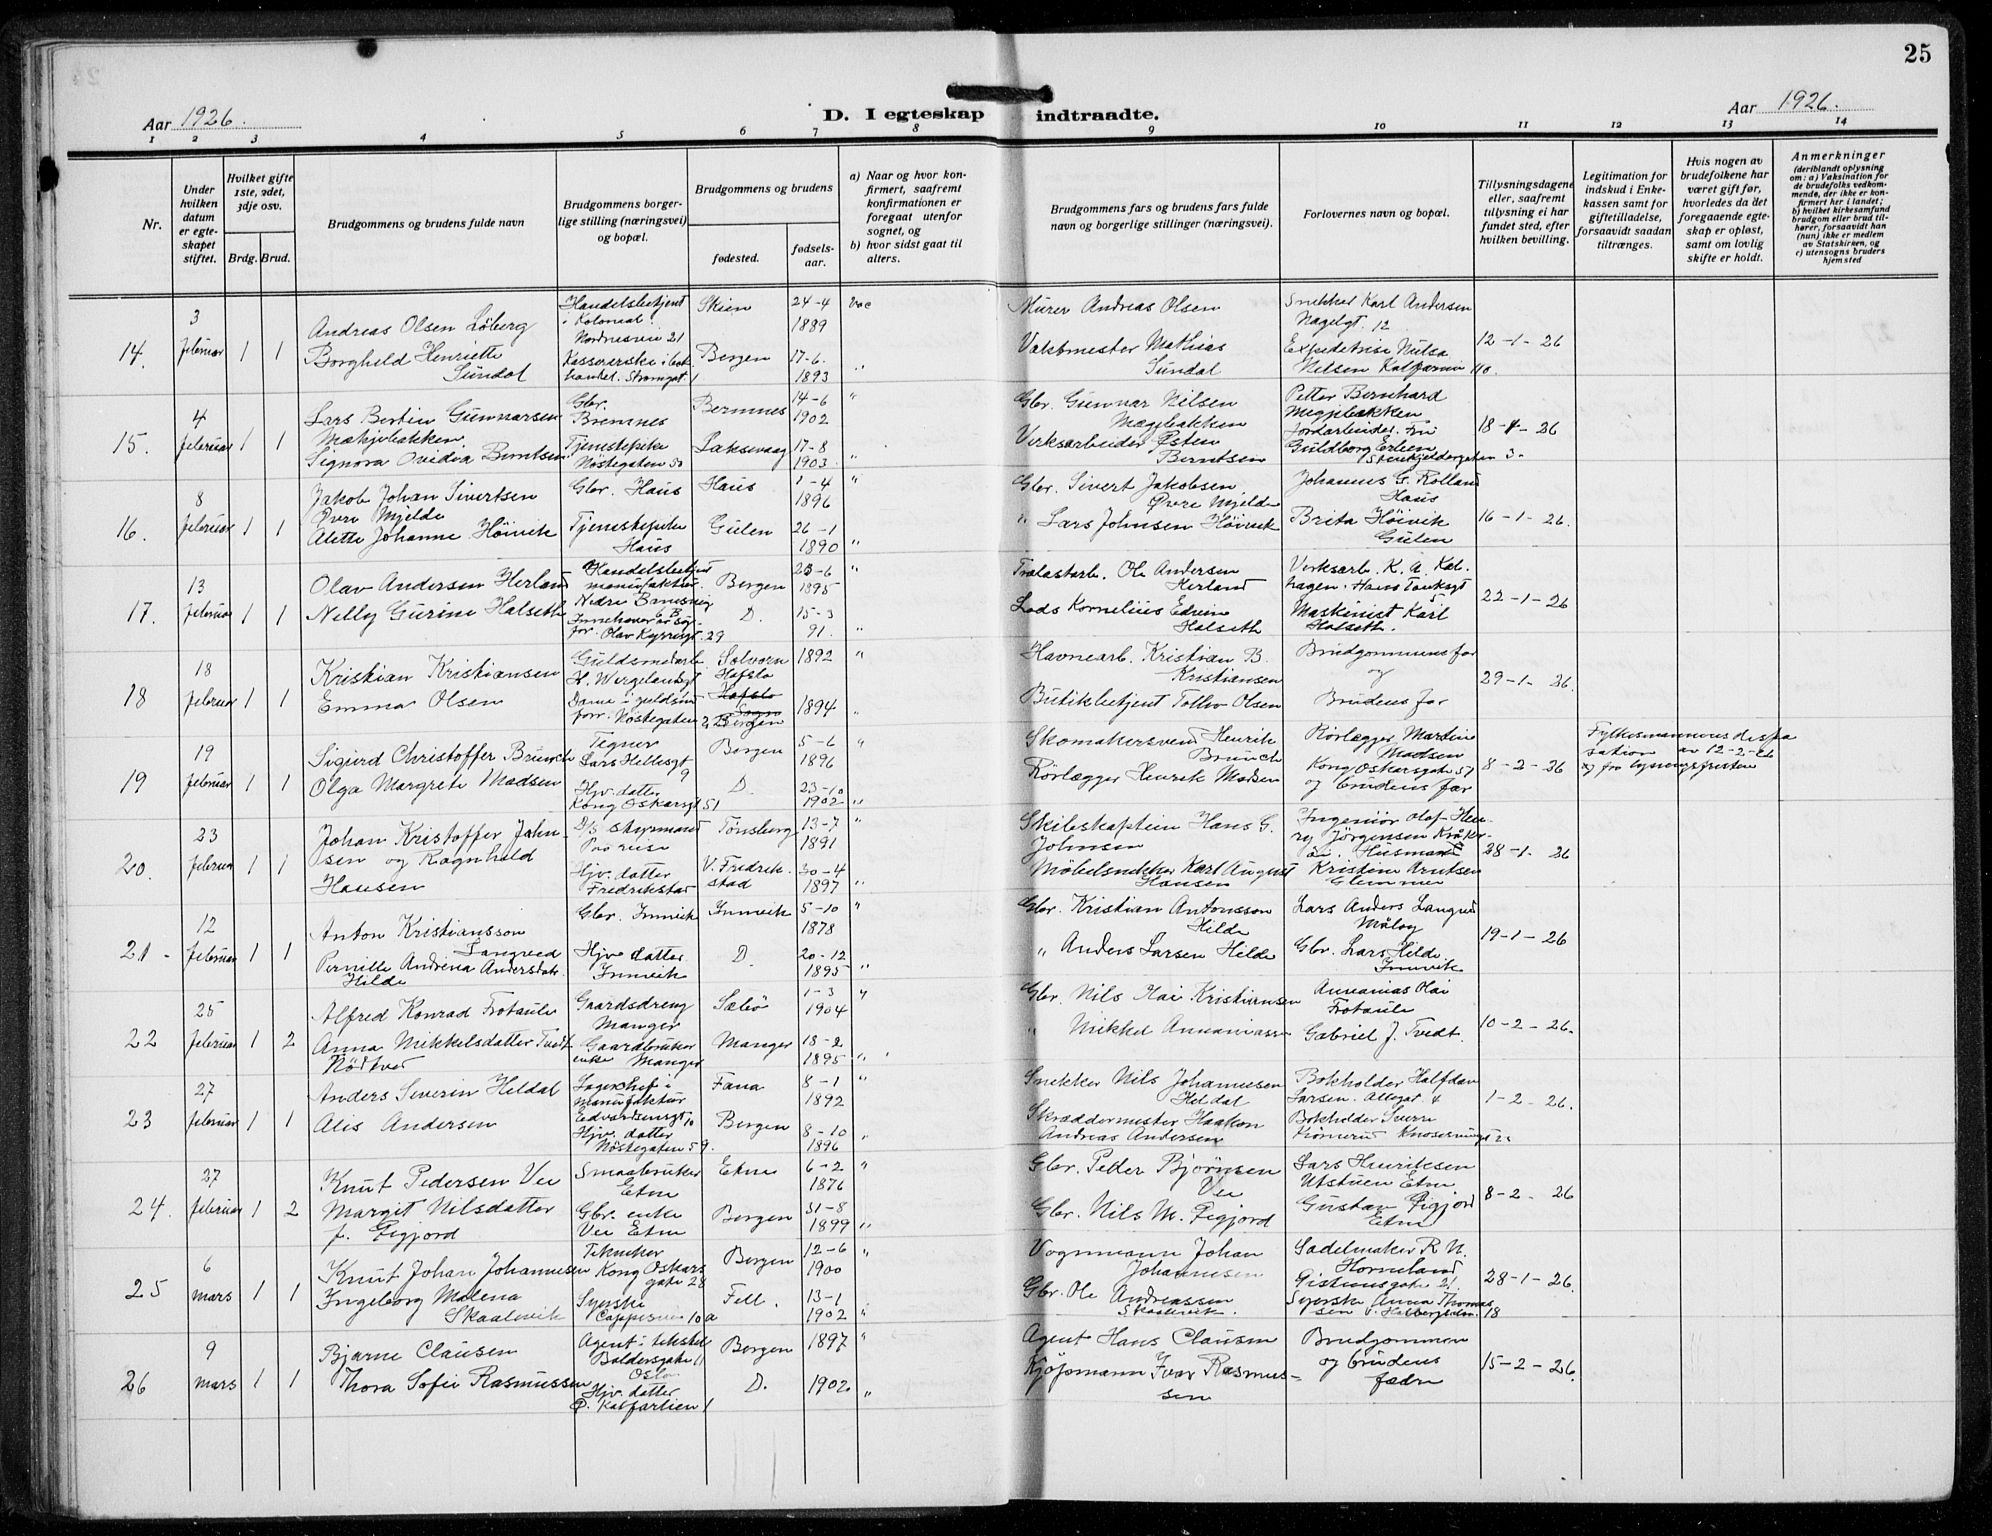 25
Aar 1926.
D. I egteskap indtraadte.
Aar 1926.
1 2 3 4 5 6 7 8 9 10 11 12 13 14
Nr.
Under hvilken datum er egteskapet stiftet.
Hvilket gifte 1ste, 2det, 3dje osv.
Brdg. Brud.
Brudgommens og brudens fulde navn
Brudgommens borgerlige stilling (næringsvei) og bopæl.
Brudgommens og brudens
fødested.
fødselsaar.
a) Naar og hvor konfirmert, saafremt konfirmationen er foregaat utenfor sognet, og
b) hvor sidst gaat til alters.
Brudgommens fars og brudens fars fulde navn og borgerlige stillinger (næringsvei).
Forlovernes navn og bopæl.
Tillysningsdagene eller, saafremt tillysning ei har fundet sted, efter hvilken bevilling.
Legitimation for indskud i Enkekassen samt for giftetilladelse, forsaavidt saadan tiltrænges.
Hvis nogen av brudefolkene har været gift før, hvorledes da det foregaaende egteskap er opløst, samt om lovlig skifte er holdt.
Anmerkninger
(deriblandt oplysning om: a) Vaksination for de brudefolks vedkommende, der ikke er konfirmert her i landet;
b) hvilket kirkesamfund brudgom eller brud tilhører, forsaavidt han (hun) ikke er medlem av Statskirken, og
c) utensogns bruders hjemsted
14. 3 februar 1 1
Andreas Olsen Löberg
Borghild Henriette
Sundal
Handelsbetjent
i Kolonial.
Nordnesveien 21
Strømgt. 1
Skien 24-4
1889
Bergen 17-6.
1893
Murer Andreas Olsen
Vaktmester Mathias
Sundal
Snekker Karl Andersen
Nagelgt. 12
Nilsen
12-1-26
15. 4 februar 1 1
Lars Bertin Gunnarsen
Mækjebakken
Signora Ovidva Berntsen
Gbr.
Bremnes
Tjenestepike
Nöstegaten 50
Bremnes 14-6
1902
Laksevaag 17-8
1903.
Gbr. Gunnar Nilsen
Mægebakken
Verksarbeider Østen
Berntsen
Petter Bernhard
Jordarbeider. Fru
Guldborg
3.
18-1-26
16. 8 februar 1 1
Jakob Johan Sivertsen
Øvre Mjelde
Alette Johanne Höivik
Gbr. Haus
Tjenestepike
Haus
Haus 1-4
1896
Gulen 26-1
1890
Gbr. Sivert Jakobsen
Øvre Mjelde
" Lars Johnsen Höivik
Johannes G. Rolland
Haus
Brita Höivik
Gulen
16-1-26.
17. 13 februar 1 1
Olav Andersen Herland
Nelly Gurine Halseth
Handelsbetjent
Nedre
Olav Kyrresgt. 29
Bergen 23-6
1895
D. 15-3
91.
Trælastarb. Ole Andersen
Herland
Lods Kornelius Edvin
Halseth
Verksarb. K. A. Kalhagen. Hans Tanksgt
5
Maskinist Karl
Halseth.
22-1-26
18 18 februar 1 1
Kristian Kristiansen
Emma Olsen
Guldsmedarb.
H. Wergelandsgt
Nöstegaten
Solvorn
Hafslo
Hafslo
Sogn
Bergen
1892
1894
Havnearb. Kristian B.
Kristiansen
Butikbetjent Tollev Olsen
Brudgommens far
og
Brudens far
29-1-26.
19 19 februar 1 1
Sigurd Christoffer Brunch
Olga Margrete Madsen
Tegner
Lars Hillesgt
9
Hjv. datter
Kong Oskarsgt 51
Bergen 5-6
1896
D. 23-10
1902
Skomakersvend Henrik
Brunch
Rörlægger Henrik Madsen
Rörlægger Martin
Madsen
Kong Oskarsgate 57
og brudens far
8-2-26
Fylkesmannens dispen
sation av 12-2-26
fra lysningsfristen
20. 23 februar 1 1
Johan Kristoffer John-
sen og Ragnhild
Hansen
D/S Styrmand
Hjv. datter
Fredrikstad
Tönsberg 13-7
1891
V. Fredrikstad 30-4
1897
Skibskaptein Hans G.
Johnsen
Möbelsnekker Karl August
Hansen
Ingeniör Olaf Hen-
ry Jörgensen Kråker-
öi. Husmand
Kristine Arntsen
Glemmen
28-1-26
21. 12 februar 1 1
Anton Kristiansson
Langved
Pernille Andrina Andersdatr.
Hilde
Gbr. Innvik
Hjv. datter.
Innvik
Innvik 5-10
1878
D. 20-12
1895
Gbr. Kristian Antonsson
Hilde
" Anders Larsen Hilde
Lars Anders Langved
Måløy
Gbr. Lars Hilde
Innvik
19-1-26
22 25 februar 1 2
Alfred Konrad Fotaule
Anna Mikkelsdatter Tvedt
Nödtved
Gaardsdreng
Manger
Gaardbruker
enke Manger
Sæbö 1-3
1904
Manger 18-2
1895
Gbr. Nils Kai Kristiansen
" Mikkel Annaniassen
Annanias Kai
Gabriel J. Tvedt.
10-2-26.
23 27 februar 1 1
Anders Severin Heldal
Alis Andersen
Lagerchef i
Manufaktur
Edvardsensgt 10
Hjv. datter
Nöstegaten 59.
Fana 8-1
1892
Bergen 8-10
1896
Snekker Nils Johannesen
Heldal
Skræddermester Haakon
Andreas Andersen
Bokholder Halfdan
Larsen. Allegt. 4
Bokholder Sverre
1-2-26.
24. 27 februar 1 2
Knut Pedersen Vee
Margit Nilsdatter
f. Figjord
Smaabruker
Etne
Gbr. enke
Vee Etne
Etne 6-2
1876
Bergen 31-8
1899
Gbr. Peder Bjørnsen
Vee
Gbr. Nils M. Figjord
Lars Henriksen
Utstuen Etne
Gustav Figjord
Etne
8-2-26
25 6 mars 1 1
Knut Johan Johannesen
Ingeborg Malena
Skaalevik
Tekniker
Kong Oskars
gate 28
Syerske
Cappesvei 10 a
Bergen 12-6
1900
Fell. 13-1
1902
Vognmann Johan
Johannesen
Gbr. Ole Andreassen
Skaalevik.
Sadelmaker R. N.
Horneland
21
Syerske Anna Thomas
sen 18
28-1-26.
26 9 mars 1 1
Bjarne Clausen
Thora Sofie Rasmussen
Agent i tekstil
Baldersgate 11
Oslo
Hjv. datter
Ø. Kalfarlien 1
Bergen 1897
D. 1902
Agent Hans Clausen
Kjöpmann Ivar Rasmus-
sen
Brudgommen
og brudens
fædre
15-2-26.